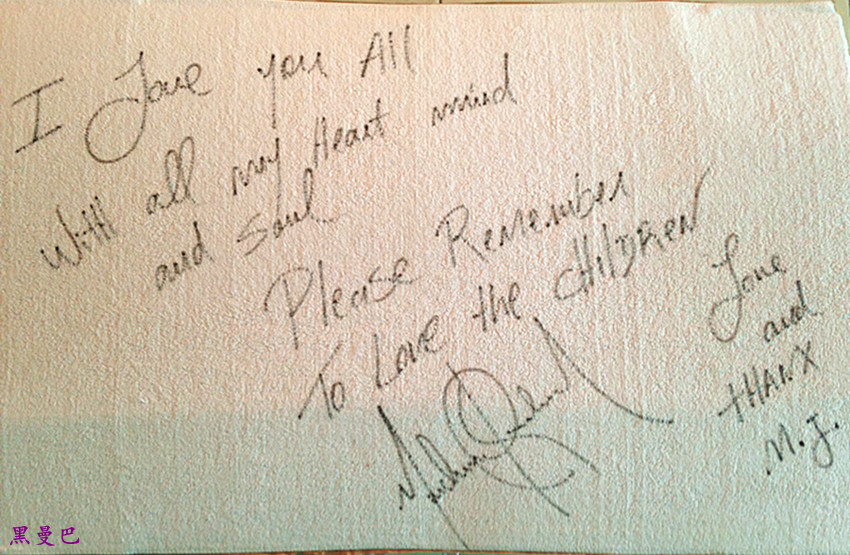 I Love you All
With all my Heart mind
and Soul
Please Remember
To Love the CHILDREN
Love
and
THANX
M.J.
黑曼巴